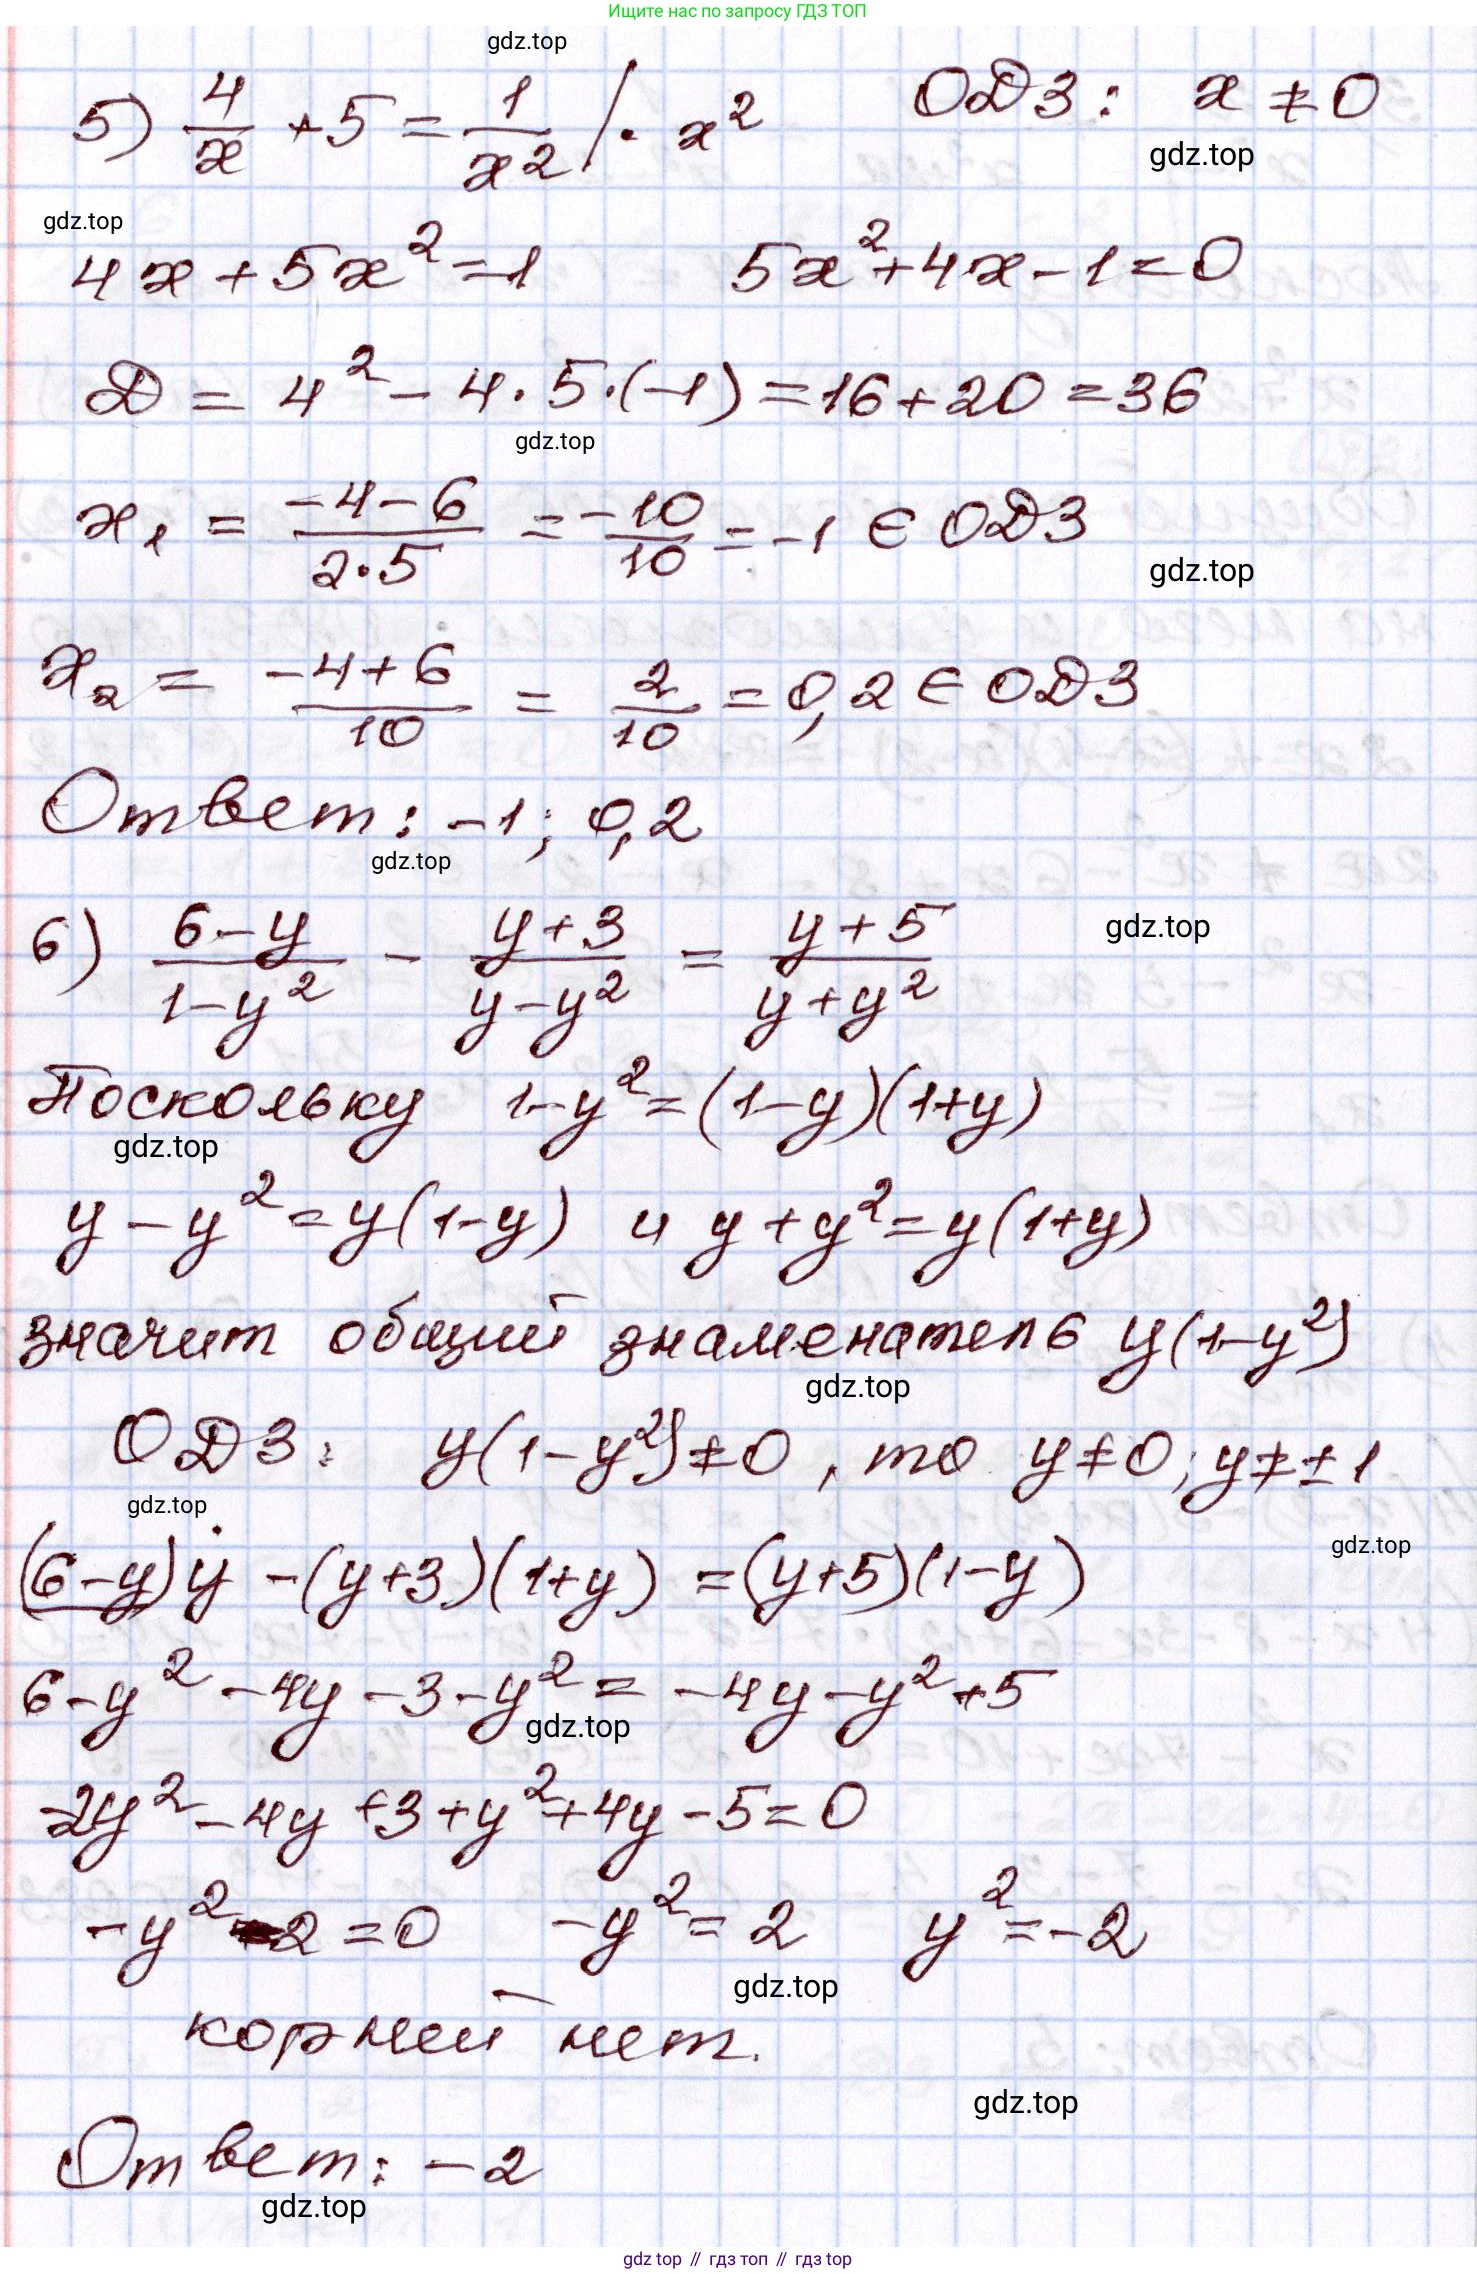 Ищите нас по запросу ГДЗ ТОП
gdz.top
5) 4/x + 5 = 1/x² | · x² ОДЗ: x ≠ 0
gdz.top
gdz.top
4x + 5x² = 1 5x² + 4x - 1 = 0
D = 4² - 4 · 5 · (-1) = 16 + 20 = 36
gdz.top
x₁ = (-4 - 6)/(2·5) = -10/10 = -1 ∈ ОДЗ
gdz.top
x₂ = (-4 + 6)/10 = 2/10 = 0,2 ∈ ОДЗ
Ответ: -1; 0,2
gdz.top
6) (6-y)/(1-y²) - (y+3)/(y-y²) = (y+5)/(y+y²)
gdz.top
Поскольку 1-y² = (1-y)(1+y)
gdz.top
y - y² = y(1-y) и y + y² = y(1+y)
значит общий знаменатель y(1-y²)
gdz.top
ОДЗ: y(1-y²) ≠ 0, то y ≠ 0; y ≠ ± 1
gdz.top
gdz.top
(6-y)y - (y+3)(1+y) = (y+5)(1-y)
6 - y² - 4y - 3 - y² = -4y - y² + 5
gdz.top
-2y² - 4y + 3 + y² + 4y - 5 = 0
-y² - 2 = 0 -y² = 2 y² = -2
gdz.top
корней нет.
gdz.top
Ответ: -2
gdz.top
gdz top // гдз топ // гдз top